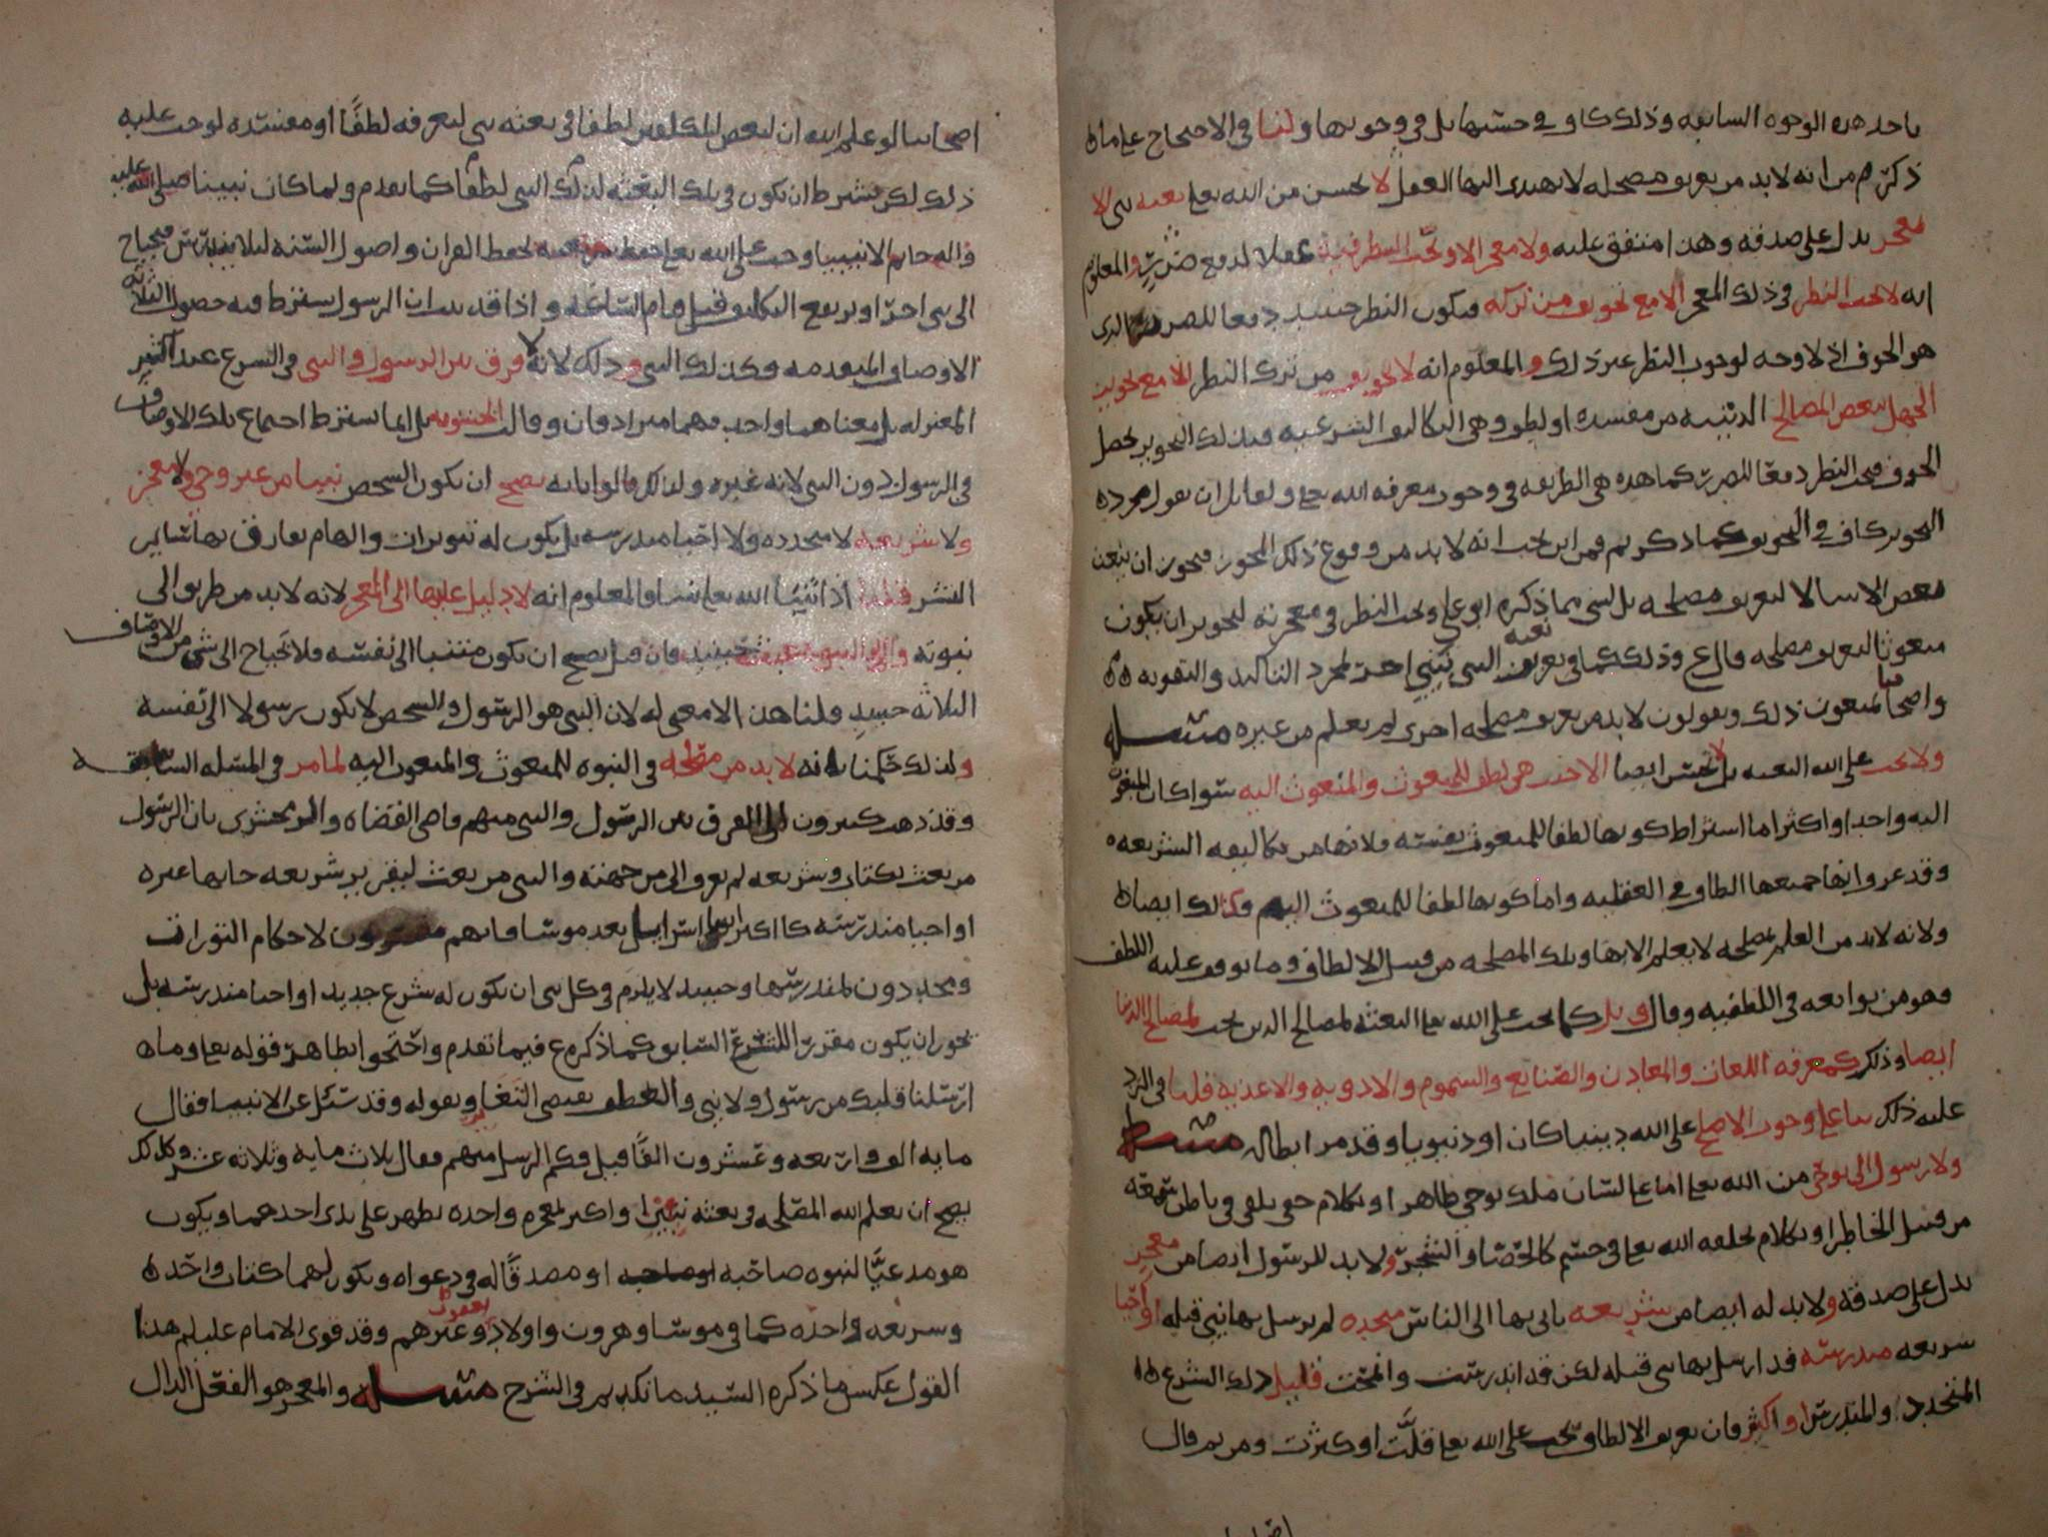 باحد هذه الوجوه السابقه وذلك كاف في حسنها بل في وجوبها ولنا في الاحتجاج على ما
ذكرتم من انه لا بد من تعريف مصلحه لا يهتدي اليها العقل لا يحسن من الله تعالى بعثه نبي الا
بمعجز يدل على صدقه وهذا متفق عليه ولا معجز الا ويجب النظر فيه عقلا لدفع ضرر والمعلوم
انه لا يجب النظر في ذلك المعجز الا مع تخويف من تركه فيكون النظر حينئذ دفعا للضرر الذي
هو الخوف اذ لا وجه لوجوب النظر غير ذلك والمعلوم انه لا تخويف من ترك النظر الا مع تجويز
الجهل ببعض المصالح الدينيه من مفسده او لطف وهي التكاليف الشرعيه فبذلك التجويز يحصل
الخوف فيجب النظر دفعا للضرر كما هذه هي الطريقه في وجوب معرفه الله تعالى ولقائل ان يقول مجرد
التجويز كاف في التخويف كما ذكرتم فمن اين يجب انه لا بد من وقوع ذلك المجوز فيجوز ان يبعث
بعض الانبيا لا لتعريف مصلحه بل لشي مما ذكره ابو علي ويجب النظر في معجزته لتجويز ان يكون
مبعوثا لتعريف مصلحه قال ع وذلك كما في تعريف بعثه النبي بنبي اخر لمجرد التاكيد والتقويه
واصحابنا يمنعون ذلك ويقولون لا بد من تعريف مصلحه اخرى لم تعلم من غيره مسله
ولا يجب على الله البعثه بل لا تحسن ايضا الا حيث هي لطف للمبعوث والمبعوث اليه سوا كان المبعوث
اليه واحدا او اكثر اما اشتراط كونها لطفا للمبعوث نفسه فلانها من تكاليفه الشرعيه
وقد عرف انها جميعها الطاف في العقليه واما كونها لطفا للمبعوث اليهم فكذلك ايضا
ولانه لا بد من العلم بمصلحه لا يعلم الا بها وتلك المصلحه من قبيل الالطاف وما توقف عليه اللطف
فهو من توابعه في اللطفيه وقال وقيل كما يجب على الله تعالى البعثه لمصالح الدين يجب لمصالح الدنيا
ايضا وذلك كمعرفه اللغات والمعادن والصنايع والسموم والادويه والاغذيه قلنا في الرد
عليه ذلك بنا على وجوب الاصلح على الله دينيا كان او دنيويا وقد مر ابطاله مسله
ولا رسول الا بوحي من الله تعالى اما على لسان ملك بوحي ظاهر او بكلام خفي يلقى في باطن سمعه
من قبيل الخاطر او بكلام يخلقه الله تعالى في جسم كالحصا والشجر ولا بد للرسول ايضا من معجز
يدل على صدقه ولا بد له ايضا من شريعه ياتي بها الى الناس متجدده لم يرسل بها نبي قبله او احيا
شريعه مندرسه قد ارسل بها نبي قبله لكن قد اندرست وانمحت فقليل ذلك الشرع
المتجدد او المندرس او كثير فان تعريف الالطاف يجب على الله تعالى قلت او كثرت ومن ثم قال
اصحابنا لو علم الله ان لبعض المكلفين لطفا في بعثه نبي ليعرفه لطفا او مفسده لوجب عليه
ذلك لكن بشرط ان يكون في تلك البعثه لذلك النبي لطفا كما تقدم ولما كان نبينا صلى الله عليه
واله خاتم الانبيا وجب على الله تعالى حفظ شريعته لحفظ القران واصول السنه ليلا يندرس فيحتاج
الى نبي اخر او يرفع التكليف قبل قيام الساعه واذا قد بينا ان الرسول يشترط فيه حصول الثلاثه
الاوصاف المتقدمه فكذلك النبي وذلك لانه لا فرق بين الرسول والنبي في الشرع عند اكثر
المعتزله بل معناهما واحد فهما مترادفان وقالت الحشويه بل انما يشترط اجتماع تلك الاوصاف
في الرسول دون النبي لانه غيره ولذلك قالوا بانه يصح ان يكون الشخص نبيا من غير وحي ولا معجز
ولا شريعه لا متجدده ولا احيا مندرسه بل يكون له تنويرات والهام يفارق بها ساير
البشر قلنا اذا انبئنا الله تعالى نبيا والمعلوم انه لا دليل عليها الا المعجز لانه لا بد من طريق الى
نبوته حينئذ فان قيل يصح ان يكون متنبيا الى نفسه فلا يحتاج الى شي من الاوصاف
الثلاثه حينئذ قلنا هذا لا معنى له لان النبي هو الرسول والشخص لا يكون رسولا الى نفسه
ولذلك حكمنا بانه لا بد من مصلحه في النبوه للمبعوث والمبعوث اليه لما مر في المسله السابقه
وقد ذهب كثيرون الى الفرق بين الرسول والنبي منهم قاضي القضاه والزمخشري بان الرسول
من بعث بكتاب وشريعه لم تعرف الا من جهته والنبي من بعث لتقرير شريعه جا بها غيره
او احيا مندرسه كاكثر انبيا اسرائيل بعد موسى فانهم مقررون لاحكام التورات
ومجددون لمندرسها وحينئذ لا يلزم في كل نبي ان يكون له شرع جديد او احيا مندرسه بل
يجوز ان يكون مقررا للشرع السابق كما ذكره ع فيما تقدم واحتجوا بظاهر قوله تعالى وما
ارسلنا قبلك من رسول ولا نبي والعطف يقتضي التغاير وبقوله وقد سئل عن الانبيا فقال
مايه الف واربعه وعشرون الفا قيل فكم الرسل منهم فقال ثلاث مايه وثلاثه عشر وكذلك
يصح ان يعلم الله المصلحه في بعثه نبيين او اكثر لمعجزه واحده تظهر على يدي احدهما ويكون
هو مدعيا لنبوه صاحبه او مصدقا له في دعواه ويكون لهما كتاب واحد
وشريعه واحده كما في موسى وهرون واولاد يعقوب وغيرهم وقد قوى الامام عليلم هذا
القول عكس ما ذكره السيد مانكديم في الشرح مسله والمعجز هو الفعل الدال